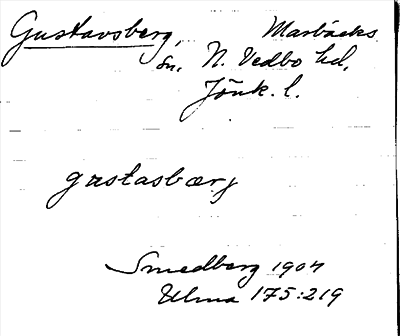 Gustavsberg, Marbäcks
sn. N. Vedbo hd,
Jönk. l.
gustasbærj
Smedberg 1904
Ulma 175:219